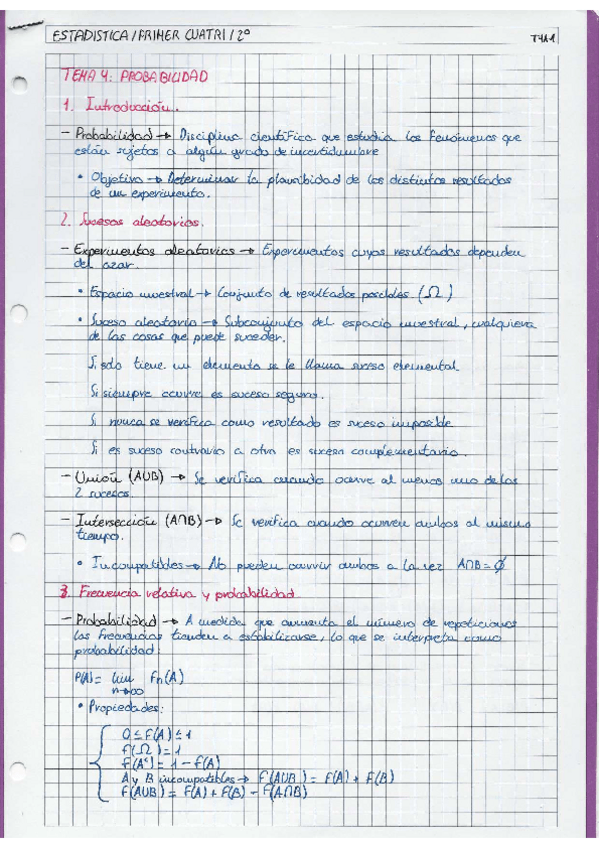 ESTADISTICA / PRIMER CUATRI / 2º
T4.1
TEMA 4: PROBABILIDAD
1. Introducción.
- Probabilidad → Disciplina científica que estudia los fenómenos que
están sujetos a algún grado de incertidumbre
• Objetivo → Determinar la plausibidad de los distintos resultados
de un experimento.
2. Sucesos aleatorios.
- Experimentos aleatorios → Experimentos cuyos resultados dependen
del azar.
• Espacio muestral → Conjunto de resultados posibles (Ω)
• Suceso aleatorio → Subconjunto del espacio muestral, cualquiera
de las cosas que puede suceder.
Si solo tiene un elemento se le llama suceso elemental
Si siempre ocurre es suceso seguro.
Si nunca se verifica como resultado es suceso imposible
Si es suceso contrario a otro es suceso complementario.
- Unión (A∪B) → Se verifica cuando ocurre al menos uno de los
2 sucesos.
- Intersección (A∩B) → Se verifica cuando ocurren ambos al mismo
tiempo.
• Incompatibles → No pueden ocurrir ambos a la vez A∩B = Ø
3. Frecuencia relativa y probabilidad
- Probabilidad → A medida que aumenta el número de repeticiones
las frecuencias tienden a estabilizarse, lo que se interpreta como
probabilidad:
P(A) = lim fn(A)
n→∞
• Propiedades:
0 ≤ f(A) ≤ 1
f(Ω) = 1
f(Aᶜ) = 1 - f(A)
A y B incompatibles → f(A∪B) = f(A) + f(B)
f(A∪B) = f(A) + f(B) - f(A∩B)